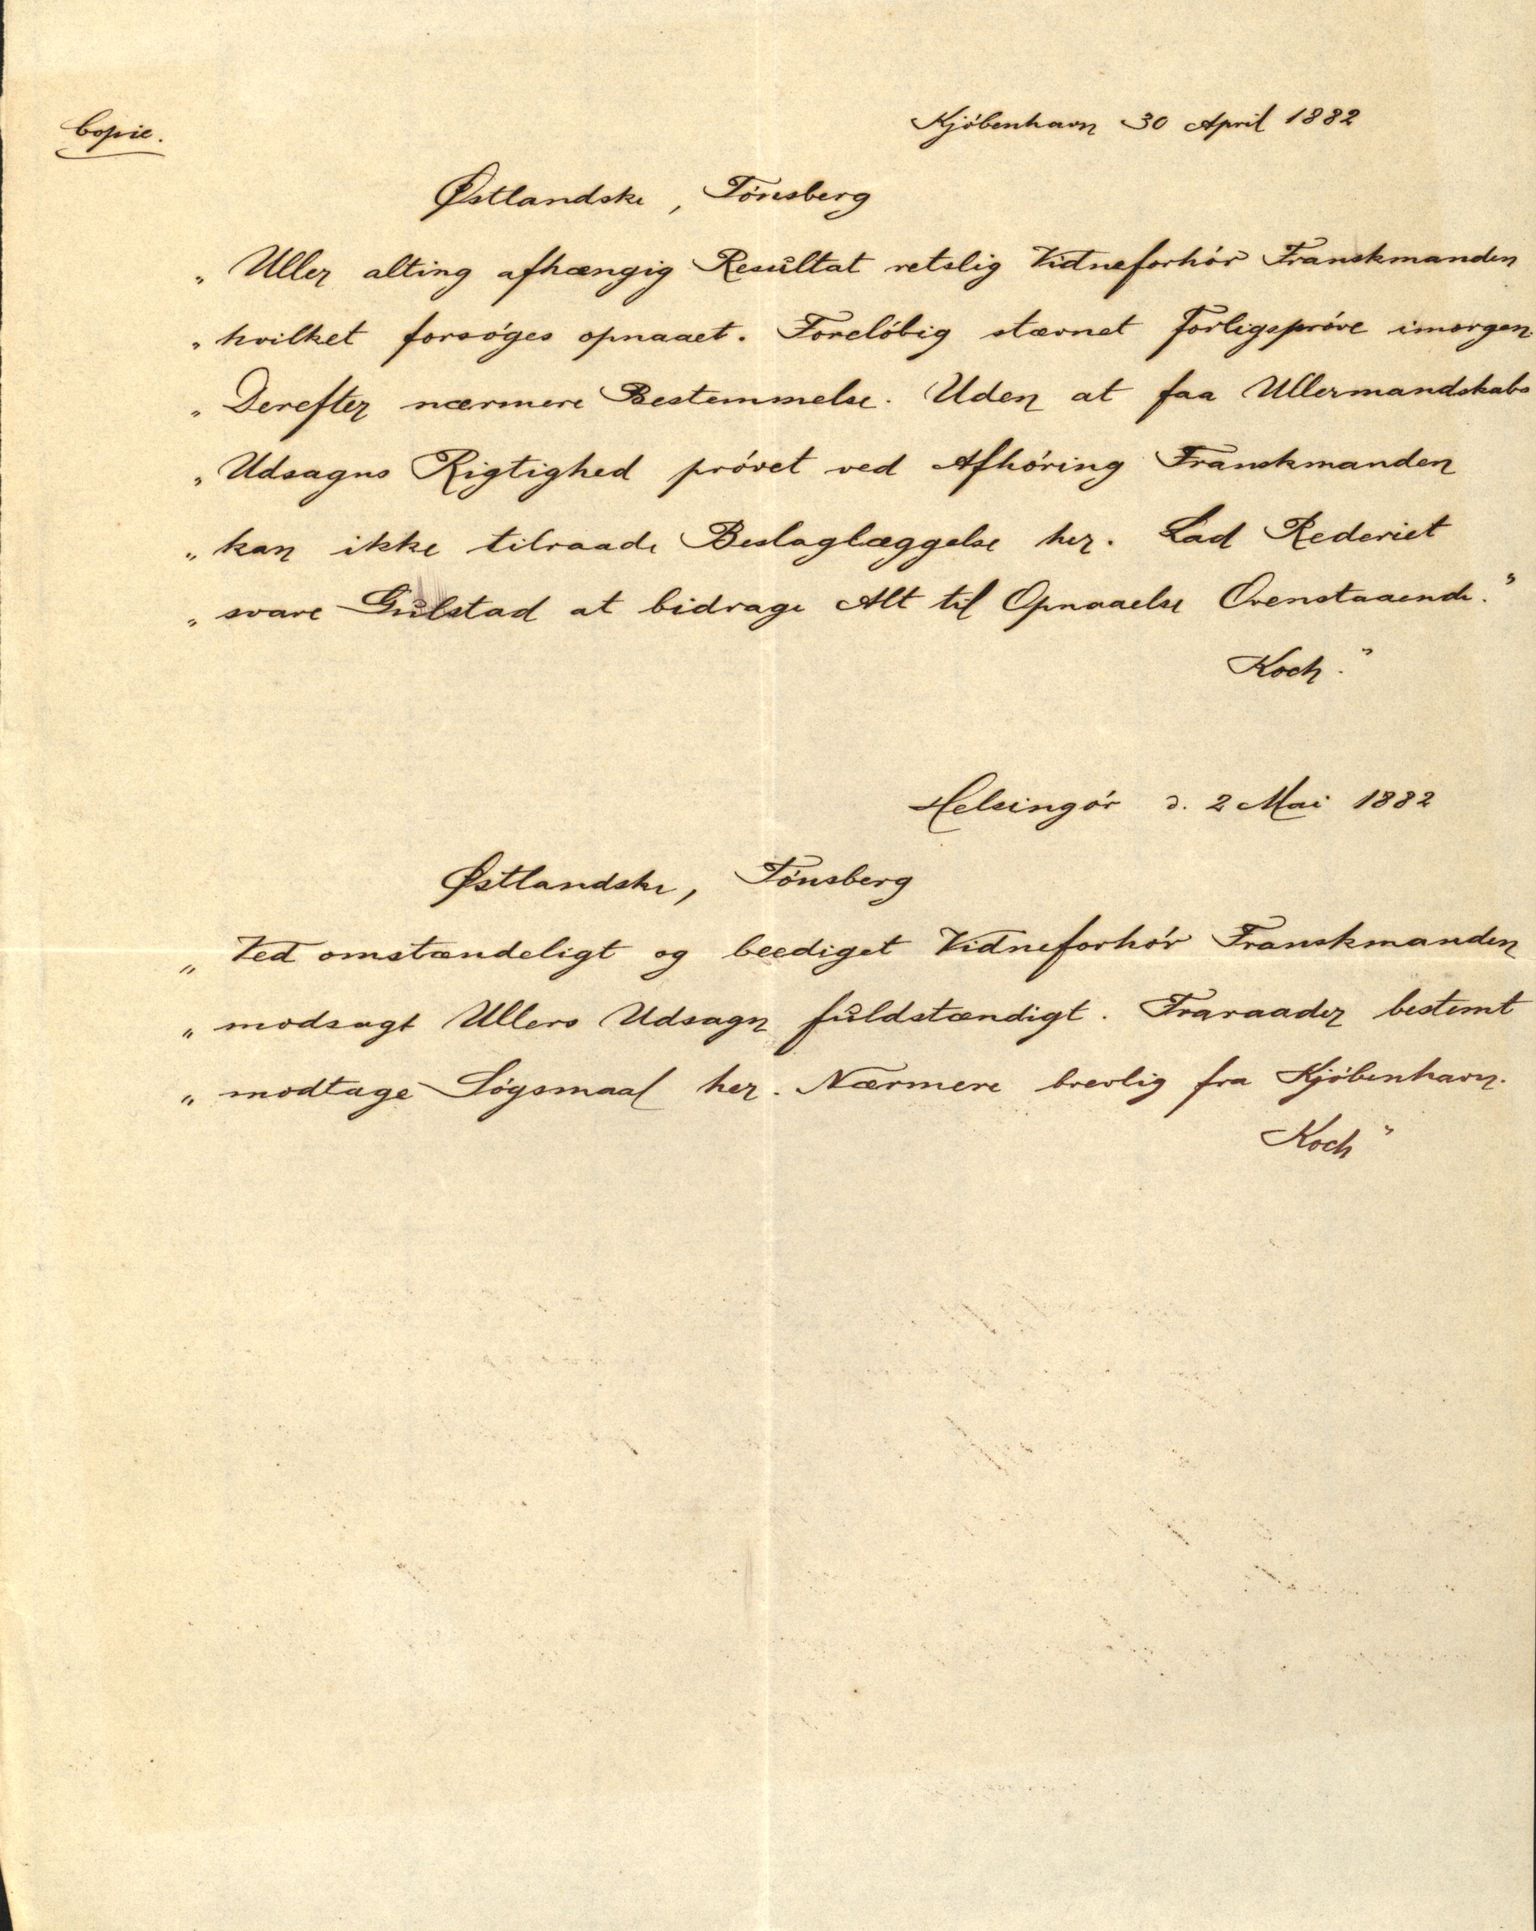 Copie.
Kjøbenhavn 30 April 1882
Østlandske, Tønsberg
„ Uller alting afhængig Resultat retslig Vidneforhør Franskmanden
„ hvilket forsøges opnaaet. Foreløbig stævnet Forligsprøve imorgen.
„ Derefter nærmere Bestemmelse. Uden at faa Ullermandskabs
„ Udsagns Rigtighed prøvet ved Afhøring Franskmanden
„ kan ikke tilraade Beslaglæggelse her. Lad Rederiet
„ svare Gulstad at bidrage Alt til Opnaaelse Ovenstaaende."
Koch."
Helsingør d. 2 Mai 1882
Østlandske, Tønsberg
„ Ved omstændeligt og beediget Vidneforhør Franskmanden
„ modsagt Ullers Udsagn fuldstændigt. Fraraader bestemt
„ modtage Søgsmaal her. Nærmere brevlig fra Kjøbenhavn.
Koch"